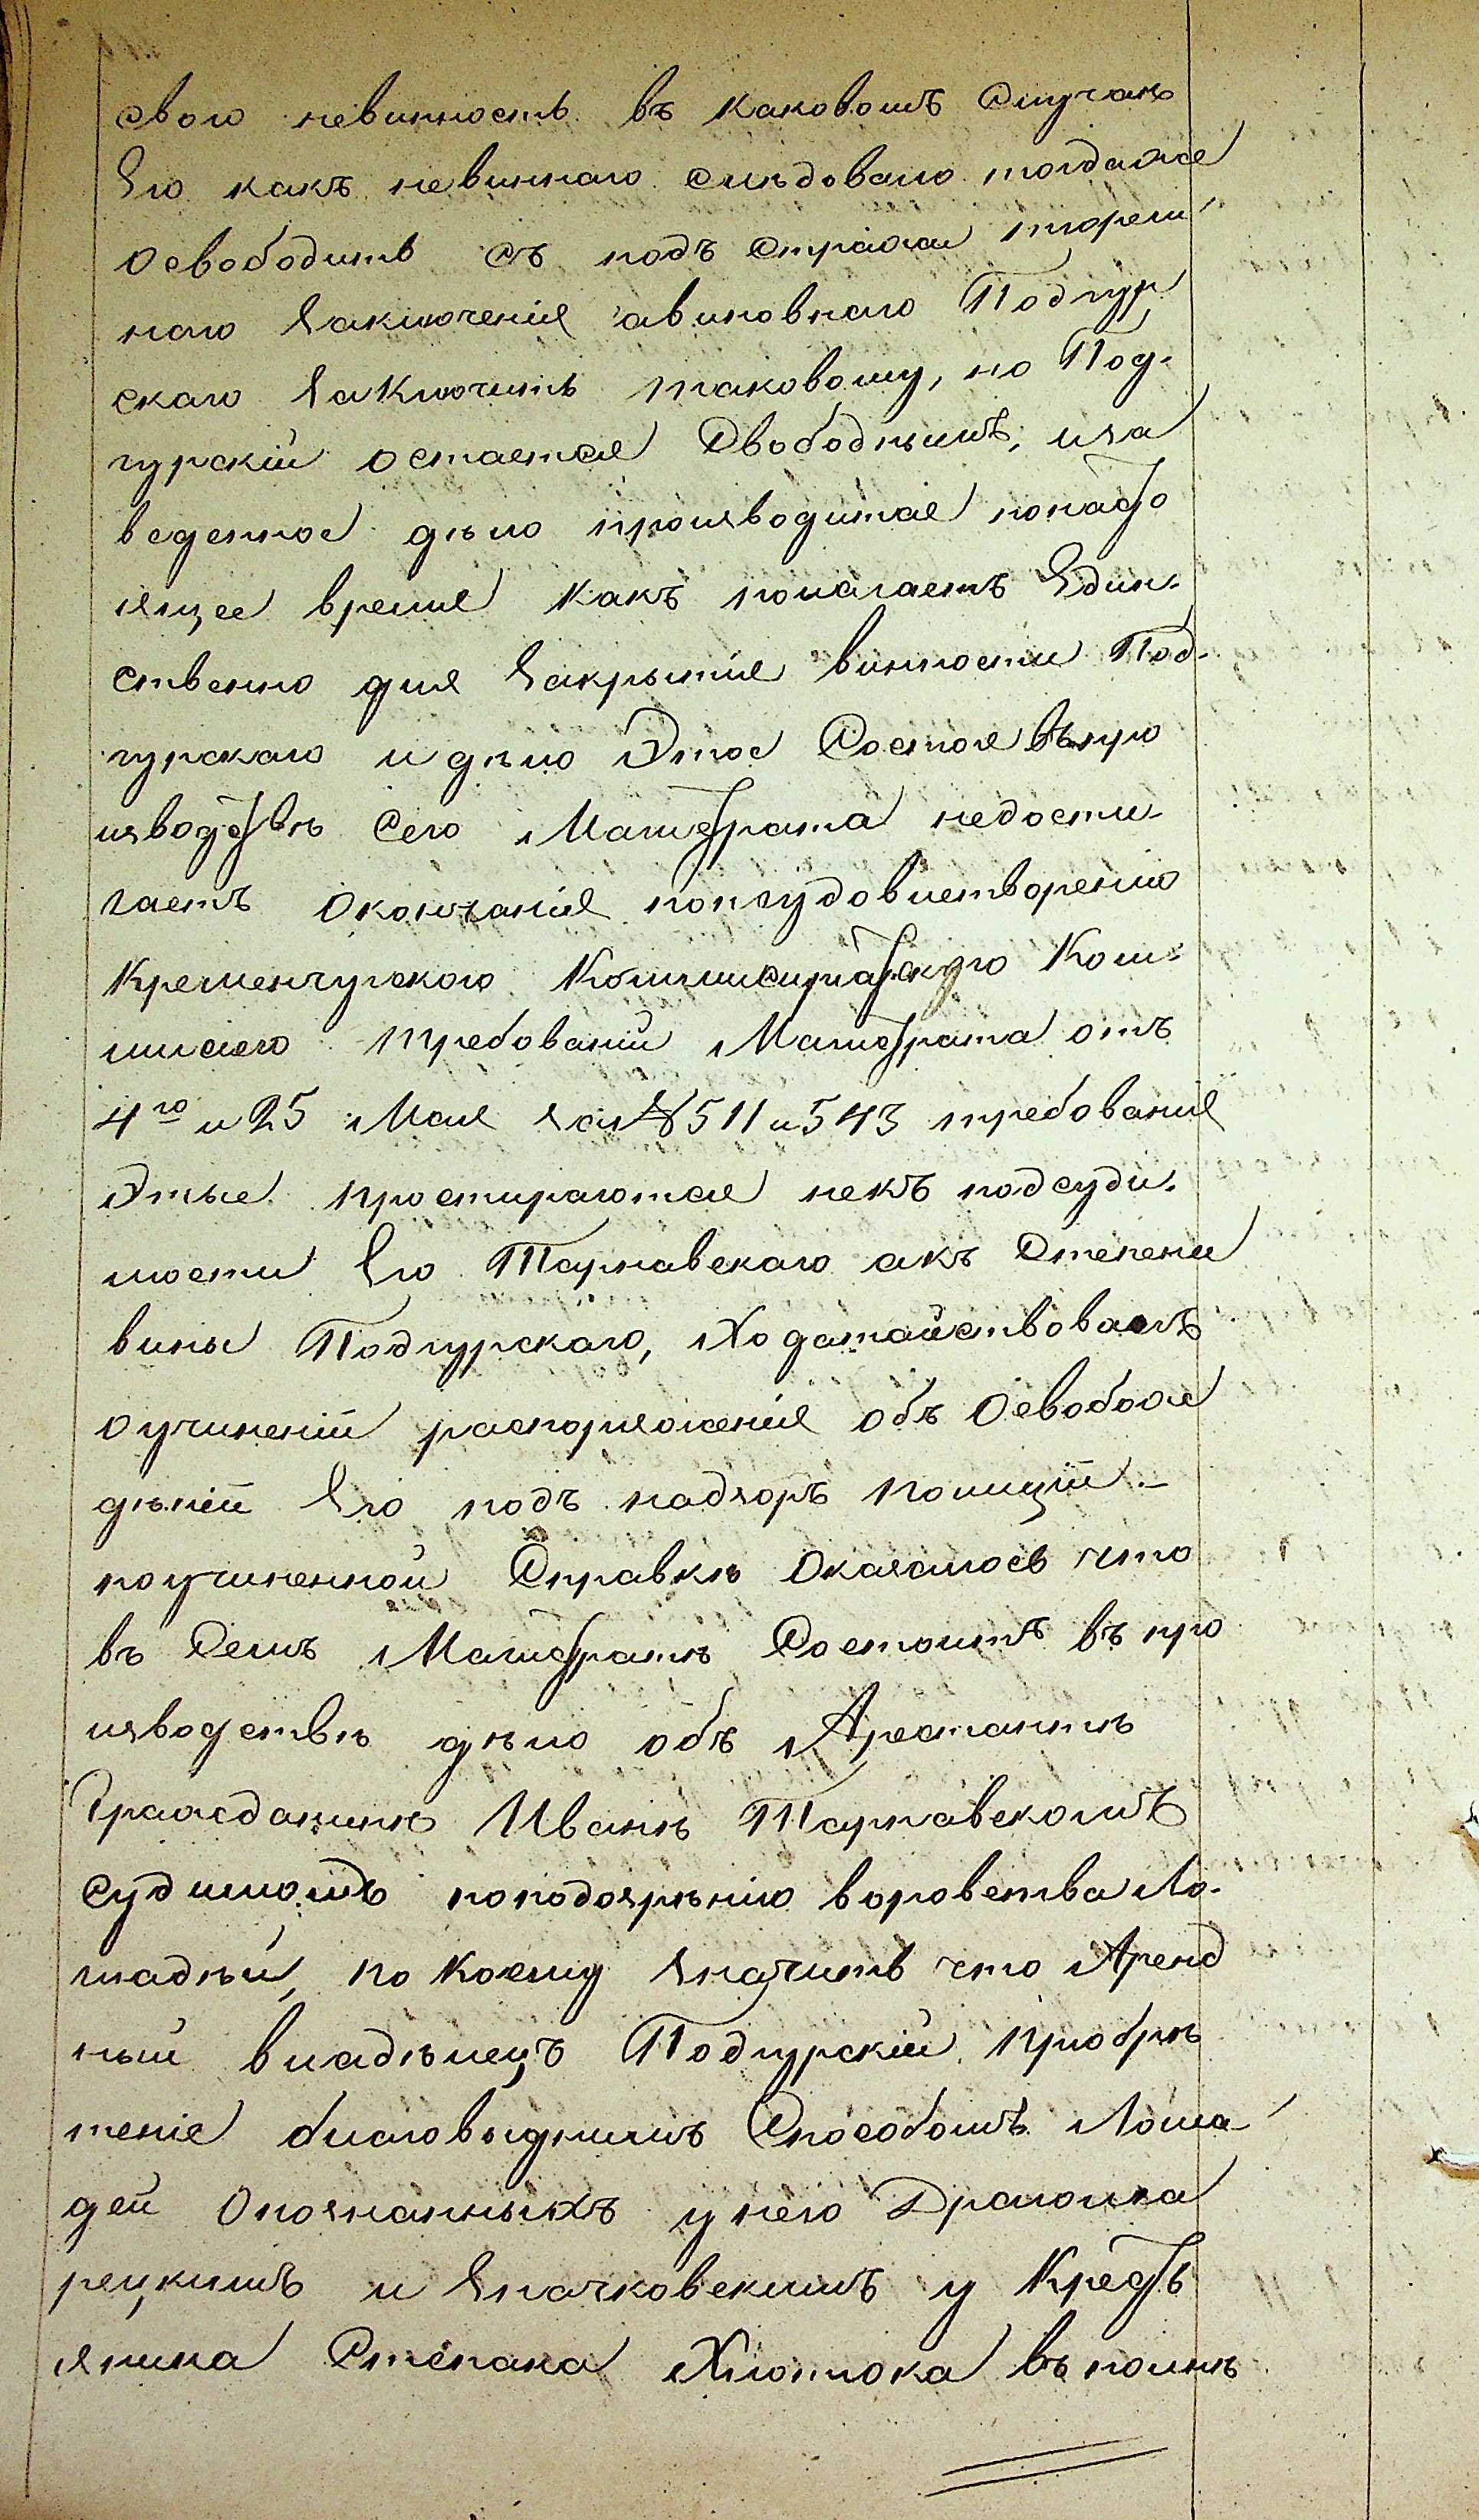 свою невинность въ каковомъ Случаѣ
Его какъ невиннаго слѣдовало тогдаже
Освободить съ подъ Стражи тюрем-
наго Заключенія авиновнаго Подгур
скаго заключить таковому, но Под-
гурскій остается Свободнымъ, иза
веденное дѣло производится понасто
ящее время какъ полагаетъ Един-
ственно для Закрытія винности Под-
гурскаго и дѣло Этое Состоя въ про
изводствѣ Сего Магистрата недости-
гаетъ Окончанія понеудовлетворенію
Кременчугского Коммисариатскую Ком-
мисіею требованій Магистрата отъ
4го и 25 Мая за № 511 и 543 требованія
Этые простираются некъ подсуди-
мости Его Тарнавскаго акъ Степени
вины Подгурскаго, Ходатайствовалъ
оучиненіи распоряженія объ Освобож
дѣніи Его подъ надзоръ полиціи.-
поучиненной Справкѣ Оказалось что
въ Семъ Магистратѣ Состоитъ въ про
изводствѣ дѣло объ Арестантѣ
Гражданинѣ Иванѣ Тарнавскомъ
судимомъ поподозрѣнію воровства Ло-
шадѣй, по коему значитъ что Аренд
ный владѣлецъ Подгурскій приобрѣ
теніе благовиднымъ Способомъ Лоша-
дей Опознанныхъ унего Драгомка
рецкимъ и Значковскимъ у Кресть
янина Степана Хлопока въполнѣ